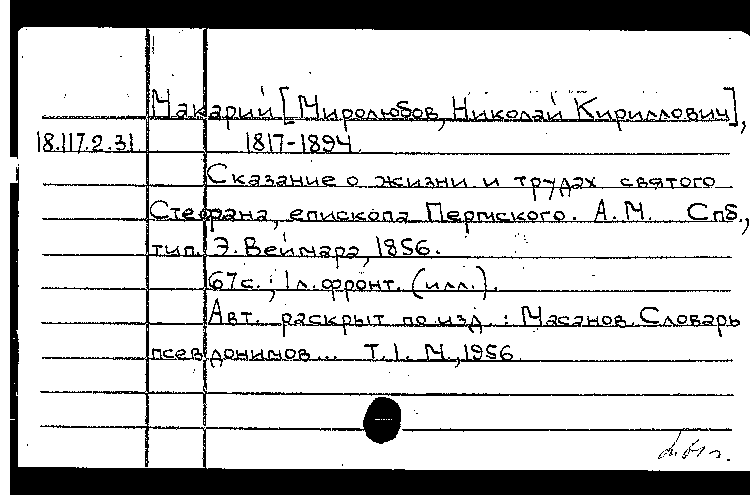 Макарий [Миролюбов, Николай Кириллович],
18.117.2.31 1817-1894
Сказание о жизни и трудах святого
Стефана, епископа Пермского. А.М. Спб.,
тип. Э. Веймара, 1856.
67с.; 1л. фронт. (илл.).
Авт. раскрыт по изд.: Масанов. Словарь
псевдонимов... Т.1. М., 1956